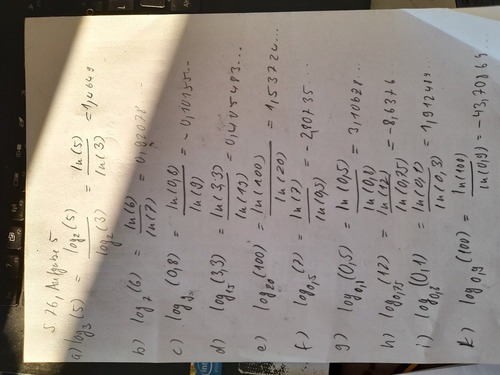 S 26, Aufgabe 5
a) log₃(5) = log₂(5) / log₂(3) = ln(5) / ln(3) = 1,4649
b) log₇(6) = ln(6) / ln(7) = 0,92078...
c) log₉(0,8) = ln(0,8) / ln(9) = -0,10155...
d) log₁₅(3,3) = ln(3,3) / = 0,4405483...
e) log₂₀(100) = ln(100) / ln(20) = 1,53724...
f) log₀,₅(7) = ln(7) / ln(0,5) = -2,80735...
g) (0,5) = ln(0,5) / = 3,10628...
h) log₀,₇₅(12) = ln(12) / ln(0,75) = -8,6376
i) (0,1) = ln(0,1) / ln(0,3) = 1,912489...
k) log₀,₉(100) = ln(100) / ln(0,9) = -43,70869...